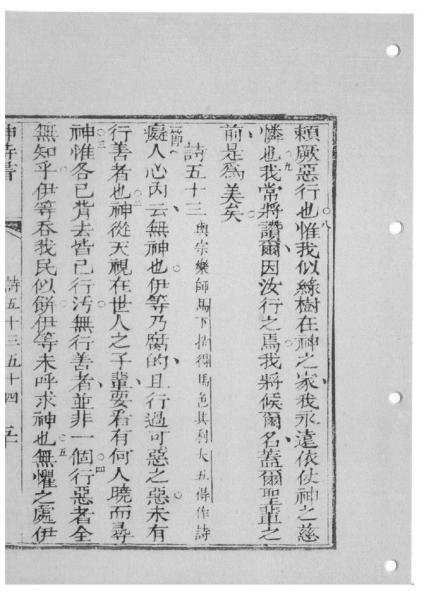 賴厥惡行也惟我似綠樹在神之家我永遠依仗神之慈
憐也我常將讚爾因汝行之焉我將候爾名蓋爾聖輩之
前是爲美矣
詩五十三 與宗樂師馬下拉得馬色其耐大五得作詩
一節 癡人心內云無神也伊等乃腐的且行過可惡之惡未有
行善者也神從天視在世人之子輩要看有何人曉而尋
神惟各已背去皆已行汚無行善者並非一個行惡者全
無知乎伊等吞我民似餅伊等未呼求神也無懼之處伊
神 詩 書 詩五十三五十四